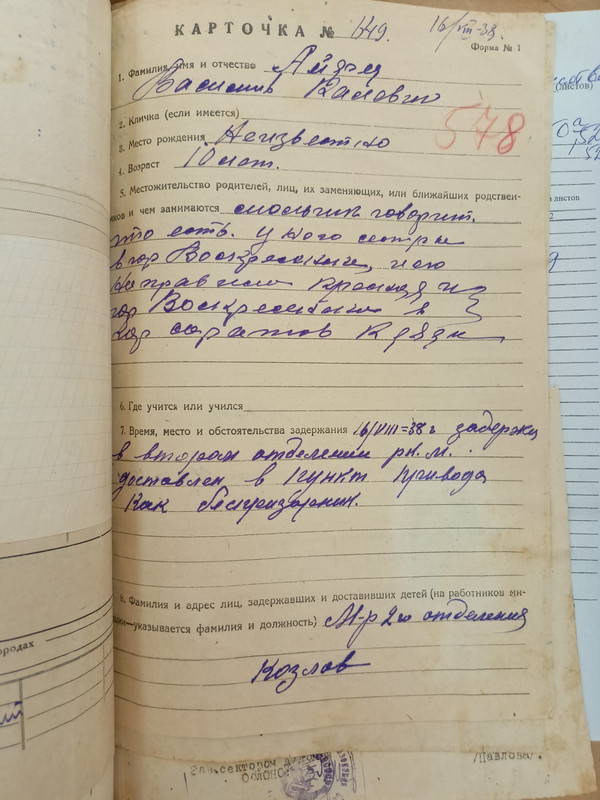 КАРТОЧКА № 1149. 16/VIII-38.
Форма № 1
1. Фамилия, имя и отчество
Василий
2. Кличка (если имеется)
578
3. Место рождения Неизвестно
4. Возраст 10 лет.
5. Местожительство родителей, лиц, их заменяющих, или ближайших родствен-
ников и чем занимаются мальчик говорит.
что есть. у него сестры
в гор Воскресении, и его
направили
гор Воскресении в
гор саратов к дяди
6. Где учится или учился
7. Время, место и обстоятельства задержания 16/VIII=38 г задержан
в втором отделении рк. м.
доставлен в пункт привода
как беспризорник.
8. Фамилия и адрес лиц, задержавших и доставивших детей (на работников ми-
лиции—указывается фамилия и должность) М-р 2го отделения
Козлов
/Павлова/.
Зав. сектором
(листов)
листов
ородах